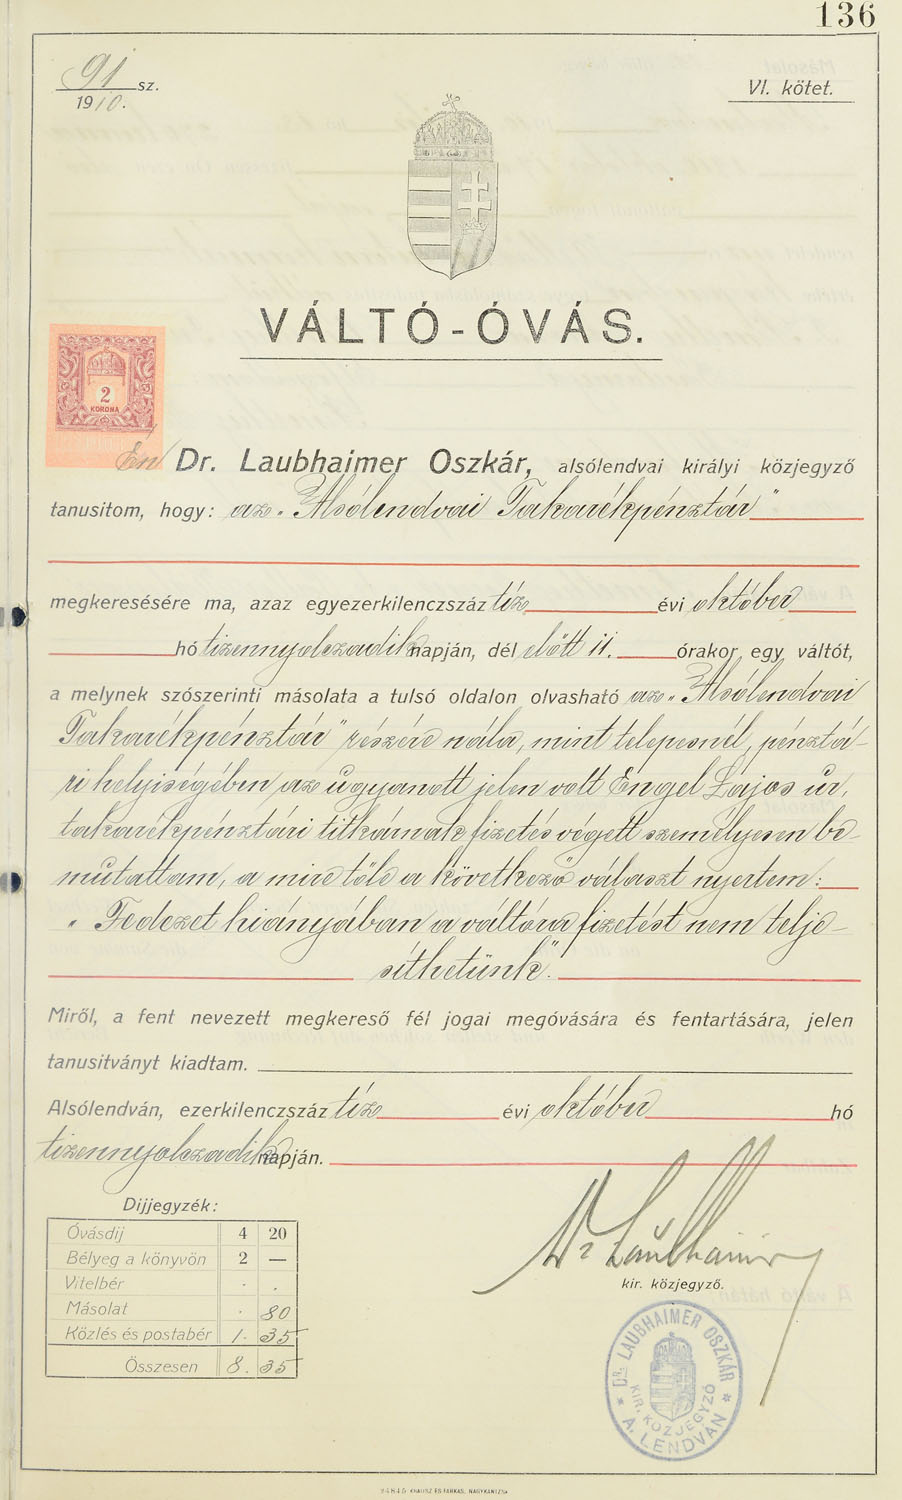 136
91 sz.
1910.
VI. kötet.
VÁLTÓ-ÓVÁS.
2
KORONA
Én Dr. Laubhaimer Oszkár, alsólendvai királyi közjegyző
tanusitom, hogy: az „Alsólendvai Takarékpénztár"
megkeresésére ma, azaz egyezerkilenczszáz tíz évi október
hó tizennyolczadik napján, dél előtt 11. órakor egy váltót,
a melynek szószerinti másolata a tulsó oldalon olvasható az „Alsólendvai
Takarékpénztár" részére nála, mint telepesnél, pénztá-
ri helyiségében az ugyanott jelen volt Engel Lajos úr,
takarékpénztári titkárnak fizetés végett személyesen be-
mutattam, a mire tőle a következő választ nyertem:
„Fedezet hiányában a váltóra fizetést nem telje-
síthetünk".
Miről, a fent nevezett megkereső fél jogai megóvására és fentartására, jelen
tanusitványt kiadtam.
Alsólendván, ezerkilenczszáz tíz évi október hó
tizennyolczadik napján.
Dijjegyzék:
Óvásdij 4 20
Bélyeg a könyvön 2 —
Vitelbér . .
Másolat . 80
Közlés és postabér 1. 35
Összesen 8. 35
Dr Laubhaimer
kir. közjegyző.
DR. LAUBHAIMER OSZKÁR
KIR. KÖZJEGYZŐ
* A. LENDVÁN *